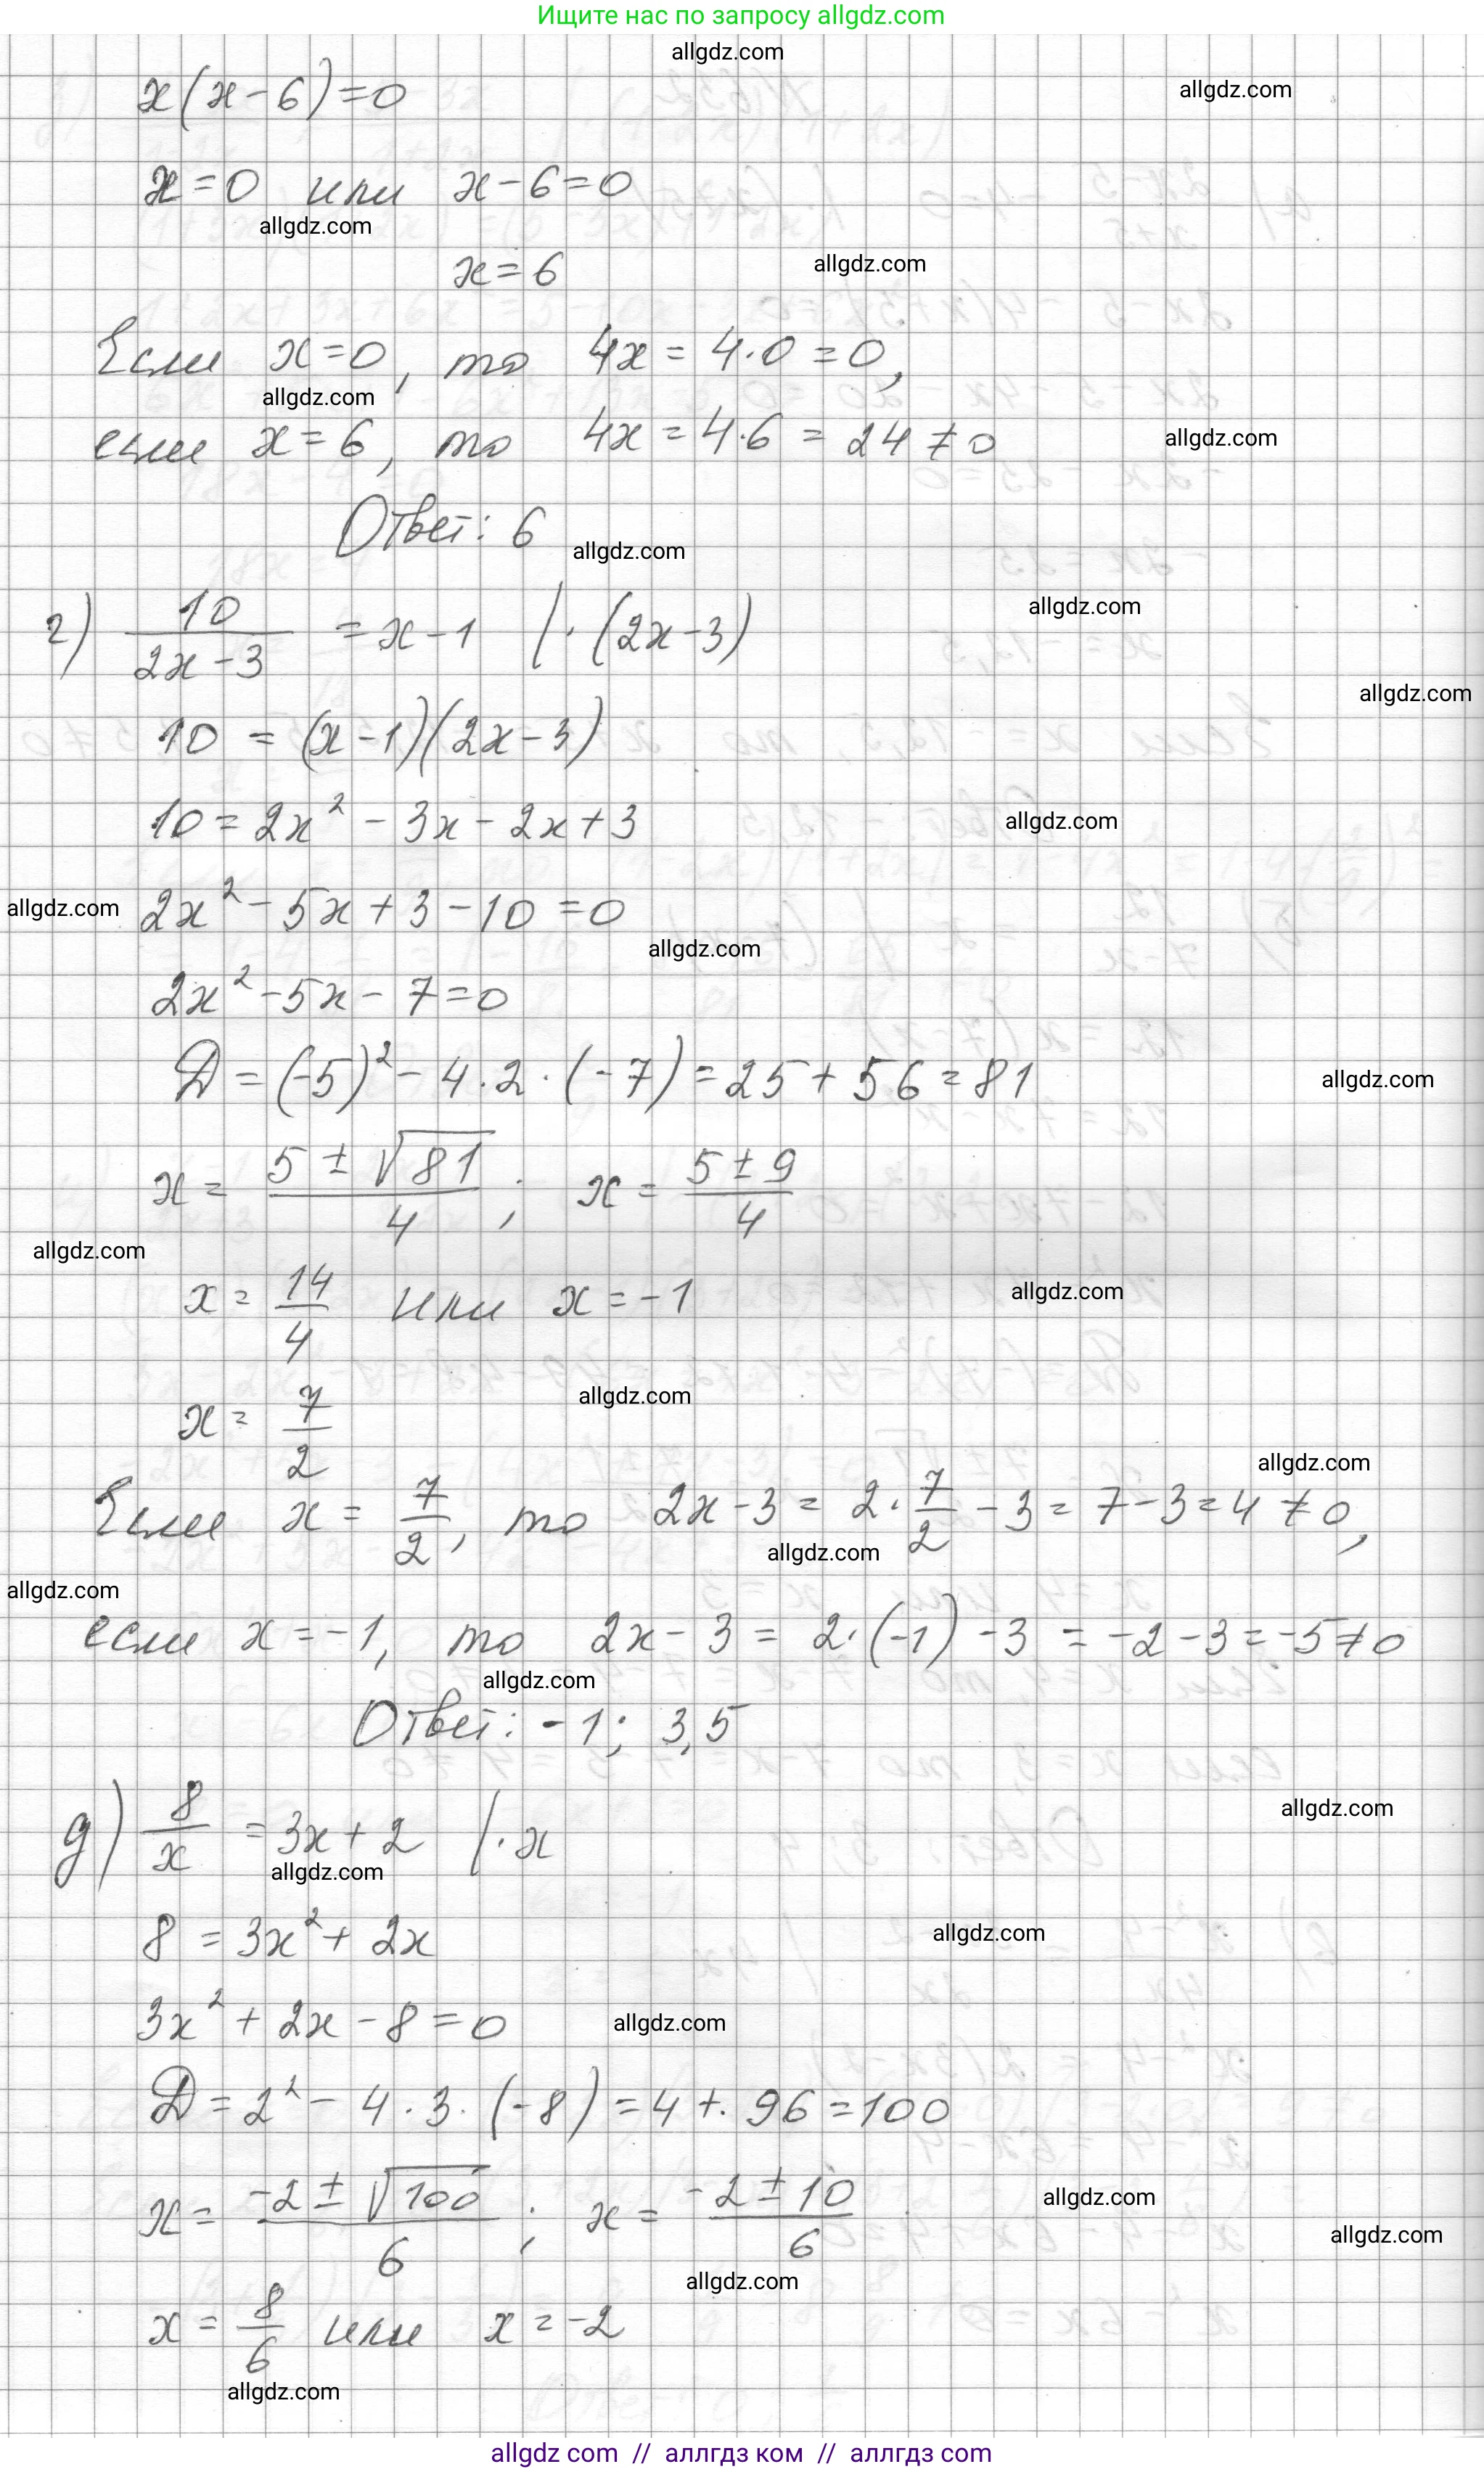 Ищите нас по запросу allgdz.com
allgdz.com
x(x-6)=0
allgdz.com
x=0 или x-6=0
allgdz.com
x=6
allgdz.com
Если x=0, то 4x=4·0=0,
allgdz.com
если x=6, то 4x=4·6=24≠0
allgdz.com
Ответ: 6
allgdz.com
г) 10/(2x-3) = x-1 |·(2x-3)
allgdz.com
allgdz.com
10 = (x-1)(2x-3)
10=2x²-3x-2x+3
allgdz.com
allgdz.com
2x²-5x+3-10=0
allgdz.com
2x²-5x-7=0
D=(-5)²-4·2·(-7)=25+56=81
allgdz.com
x= (5±√81)/4; x= (5±9)/4
allgdz.com
x= 14/4 или x=-1
allgdz.com
x= 7/2
allgdz.com
allgdz.com
Если x= 7/2, то 2x-3= 2·7/2-3=7-3=4≠0,
allgdz.com
allgdz.com
если x=-1, то 2x-3= 2·(-1)-3=-2-3=-5≠0
allgdz.com
Ответ: -1; 3,5
allgdz.com
д) 8/x =3x+2 |·x
allgdz.com
8=3x²+2x
allgdz.com
3x²+2x-8=0
allgdz.com
D=2²-4·3·(-8)=4+96=100
x= (-2±√100)/6; x= (-2±10)/6
allgdz.com
allgdz.com
allgdz.com
x= 8/6 или x=-2
allgdz.com
allgdz com // аллгдз ком // аллгдз com